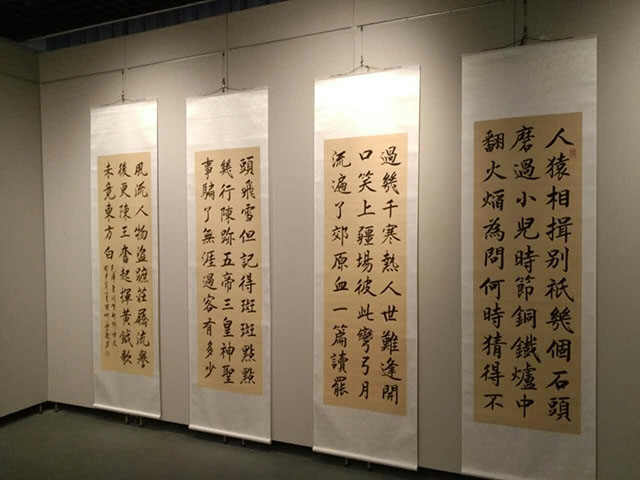 人猿相揖別祇幾個石頭
磨過小兒時節銅鐵爐中
翻火焰為問何時猜得不
過幾千寒熱人世難逢開
口笑上疆場彼此彎弓月
流遍了郊原血一篇讀罷
頭飛雪但記得斑斑點點
幾行陳跡五帝三皇神聖
事騙了無涯過客有多少
風流人物盜蹠莊屩流譽
後更陳王奮起揮黃鉞歌
未竟東方白